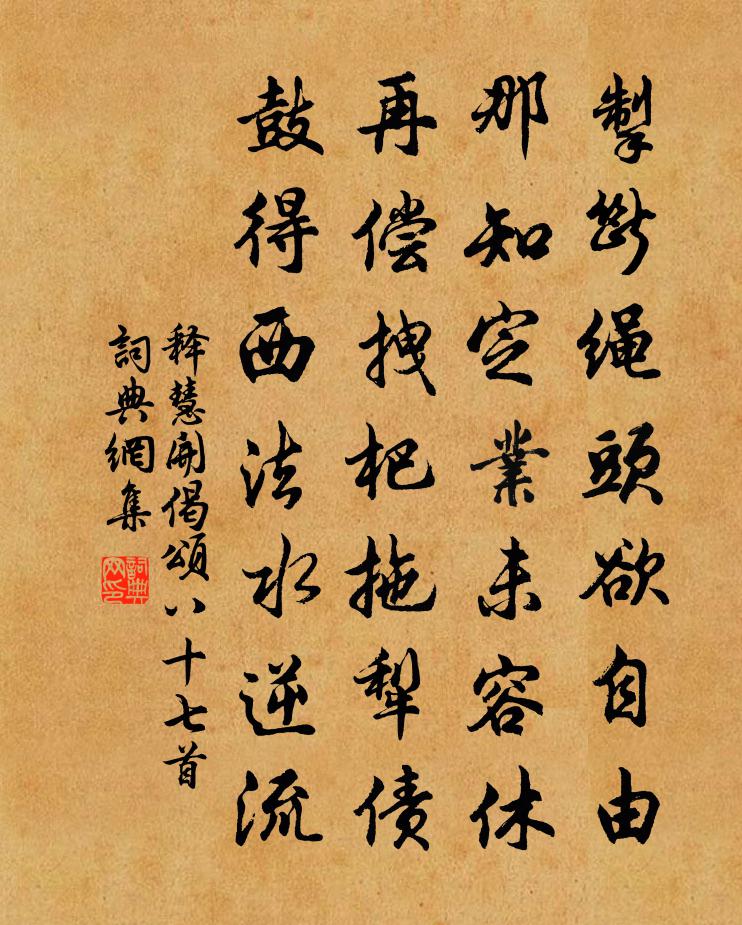 掣斷绳頭欲自由
那知定業未容休
再偿拽杷拖犁债
鼓得西法水逆流
释慧開偈頌八十七首
詞典網集
詞典网印